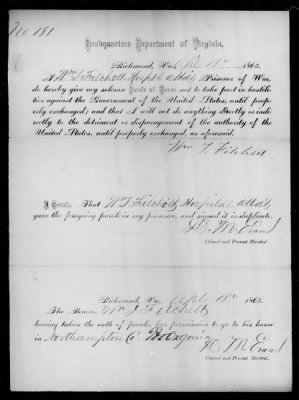 No 181
Headquarters Department of Virginia,
Richmond, Va., Apl 18th 1865.
I, Wm J Fitchett Hospital Attdt, Prisoner of War,
do hereby give my solemn Parole of Honor not to take part in hostili-
ties against the Government of the United States, until prop-
erly exchanged; and that I will not do anything directly or indi-
rectly to the detriment or disparagement of the authority of
the United States, until properly exchanged, as aforesaid.
Wm J Fitchett
I Certify, That W J Fitchett, Hospital Attdt,
gave the foregoing parole in my presence, and signed it in duplicate.
D. M. Evans
Colonel and Provost Marshal.
Richmond, Va., Apl 18th 1865.
The Bearer, Wm J Fitchett
having taken the oath of parole, has permission to go to his home
in Northampton Co Virginia
D. M. Evans
Colonel and Provost Marshal.